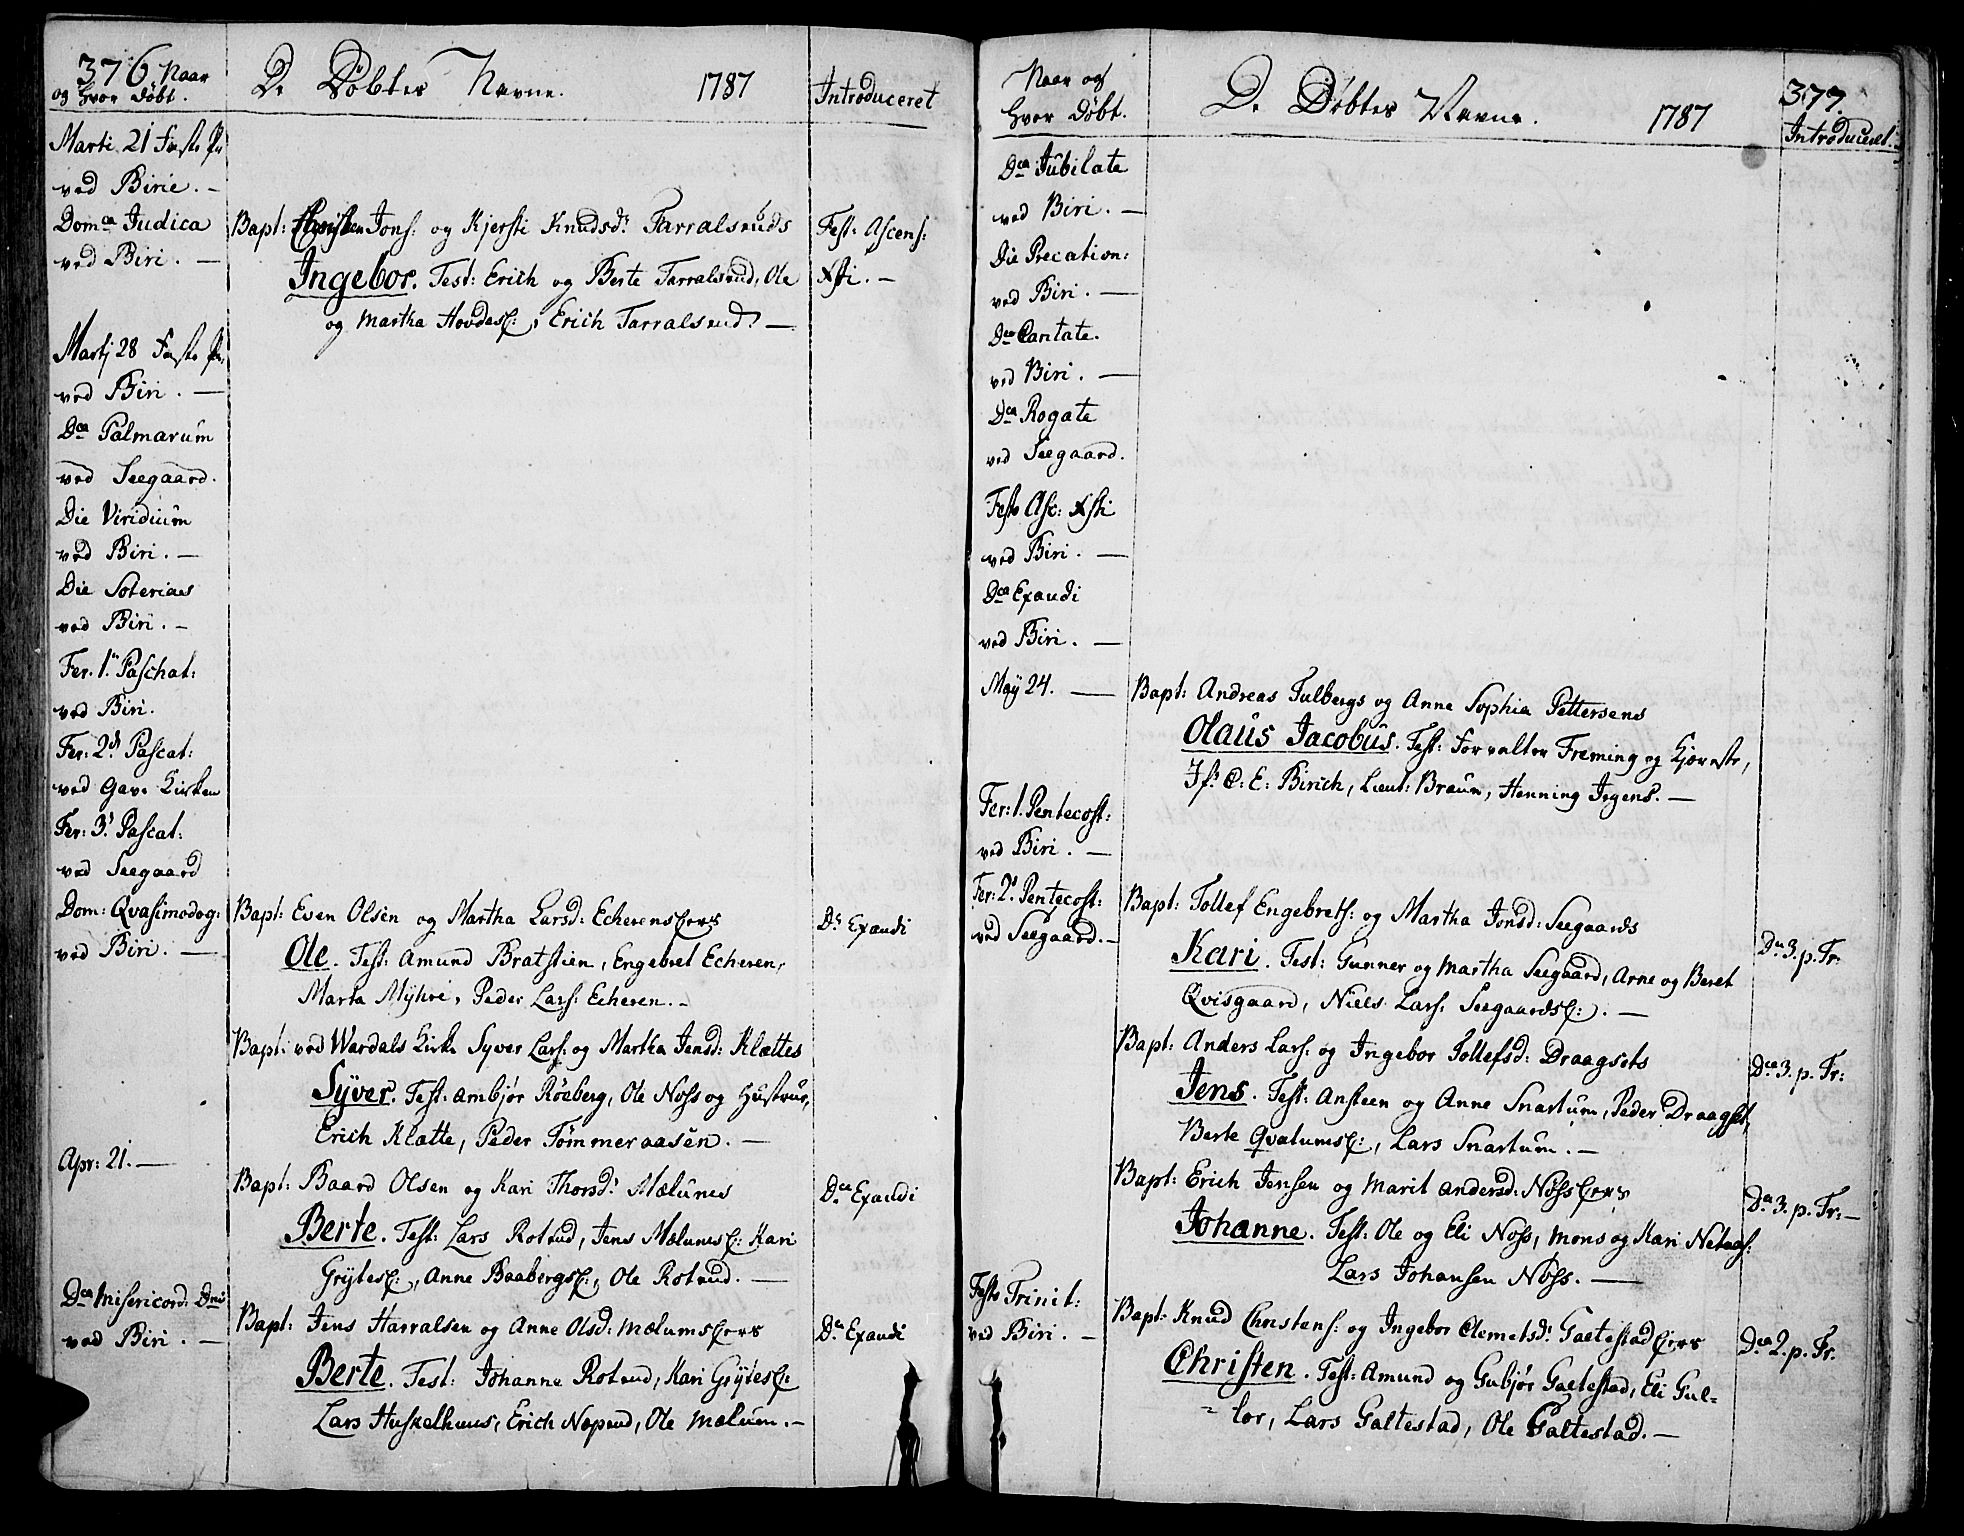 376. Naar
og hvor døbt.
De Døbtes Navne. 1787
Introduceret
Marti 21 Faste Pr
ved Birie. -
Dom^ca Judica
ved Biri. -
Bapt: Christen Jons: og Kjersti Knudsd: Farralsruds
Ingebor. Test: Erich og Berte Farralsrud, Ole
og Martha Hovdes , Erich Farralsrud -
Fest: Ascens:
Xsti. -
Martj 28 Faste Pr.
ved Biri. -
D^ca Palmarum
ved Seegaard.
Die Viridium
ved Biri. -
Die Soteriaes
ved Biri. -
Fer. 1. Paschat:
ved Biri.
Fer: 2^d Pascat:
ved Gave Kirken
Fer: 3. Pascat:
ved Seegaard
Dom: Qvasimodog:
ved Biri. -
Bapt: Even Olsen og Martha Larsd: Echerens
Ole. Test: Amund Bratstien, Engebret Echeren,
Marta Myhre, Peder Lars: Echeren. -
D^a Exaudi
Bapt: ved Wardals Kirke Syver Lars: og Martha Jensd: Klættes
Syver. Test: Ambjør Röeberg, Ole Noss og Hustrue,
Erich Klætte, Peder Tømmeraasen. -
Apr: 21. -
Bapt: Baard Olsen og Kari Thorsd: Mælunes
Berte. Test: Lars Rotrud, Jens Mælums Kari
Grytes , Anne Baabergs , Ole Rotrud. -
D^ca Exaudi
D^ca Misericord: Dni
ved Biri. -
Bapt: Jens Harralsen og Anne Olsd: Mælums
Berte. Test: Johanne Rotrud, Kari Grytes
Lars Huskelhuus, Erich Næperud, Ole Mælum. -
D^a Exaudi
Naar og
hvor døbt.
De Døbtes Navne. 1787
377.
Introduceret.
D^ca Jubilate
ved Biri. -
Die Precation:
ved Biri. -
D^ca Cantate.
ved Biri. -
D^ca Rogate
ved Seegaard.
Festo Asc: Xsti
ved Biri. -
D^ca Exaudi
ved Biri. -
Maÿ 24. -
Bapt: Andreas Tulbergs og Anne Sophia Pettersens
Olaus Jacobus. Test: Forvalter Freming og Kjæreste,
Jf^r C: E: Birich, Lieut: Braun, Henning Irgens. -
Fer: 1. Pentecost:
ved Biri. -
Fer: 2. Pentecost:
ved Seegaard. -
Bapt: Tollef Engebrets: og Martha Jonsd: Seegaards
Kari. Test: Gunner og Martha Seegaard, Arne og Beret
Qvisgaard, Niels Lars: Seegaards . -
D^a 3. p. Tr:
Bapt: Anders Lars: og Ingebor Tollefsd: Draagsets
Jens. Test: Ansteen og Anne Snartum, Peder Draagset,
Berte Qvatums , Lars Snartum. -
D^ca 3. p. Tr:
Bapt: Erich Jensen og Marit Andersd: Noss
Johanne. Test: Ole og Eli Noss, Mons og Kari
Lars Johansen Noss. -
D^a 3. p. Tr: -
Festo Trinit:
ved Biri. -
Bapt: Knud Christens: og Ingebor Clemetsd: Galtestad
Christen. Test: Amund og Gubjør Galtestad, Eli Gul-
lor, Lars Galtestad, Ole Galtestad. -
D^ca 2. p. Tr.